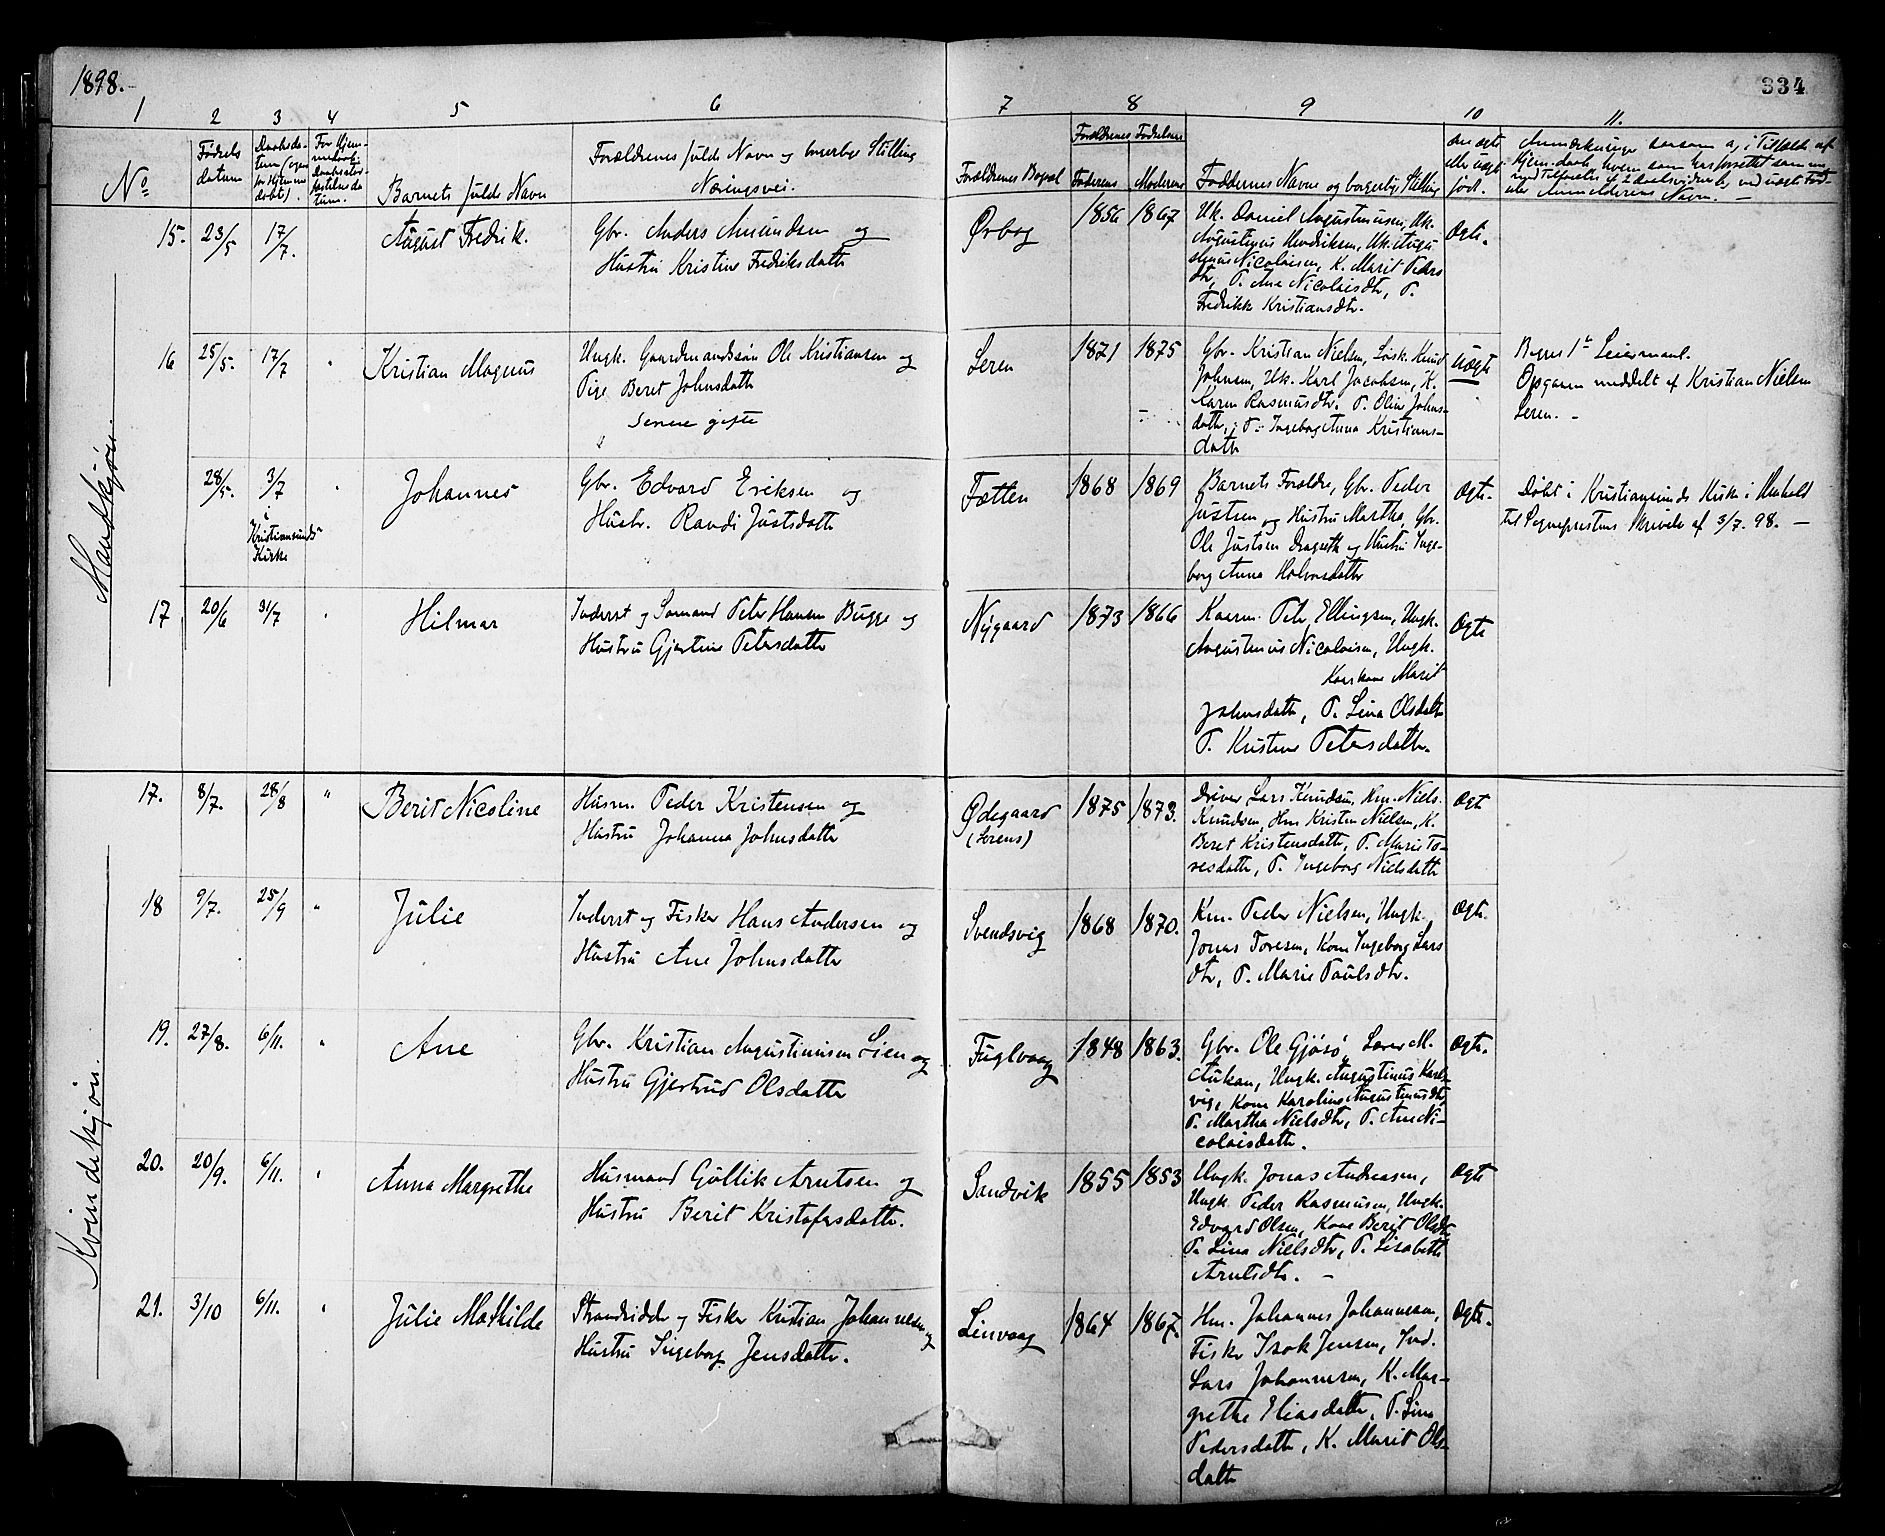 1898.
334
1 2 3 4 5 6 7 8 9 10 11.
No
Fødsels
datum
Daabsda-
tum
Barnets fulde Navn
Forældrenes fulde Navn og borgerlige Stilling
Næringsvei.
Forældrenes Bopæl
Forældrenes Fødselsaar
Faderens Moderens
Faddernes Navne og borgerlige Stilling
Om ægte
eller uægte
født.
Mandskjøn.
15. 23/5 17/7. August Fredrik.
Gbr. Anders Amundsen og
Hustru Kristine Fredriksdatter
Ørbog 1856 1867
Uk. Daniel Augustinusen, Uk.
Augustinus Hendriksen, Uk. Augu
stinus Nicolaisen, K. Marit Peders
dtr, P. Ane Nicolaisdtr, P.
Fredrikke Kristiansdtr.
Ægte.
16 25/5. 17/7 " Kristian Magnus
Ungk. Gaardmandssøn Ole Kristiansen og
Pige Beret Johnsdatter
senere gifte
Leren 1871 1875
Gbr. Kristian Nielsen, Løsk. Knud
Johnsen, Uk. Karl Jacobsen, K.
Karen Rasmusdtr. P. Oline Johns-
datter, P. Ingeborg Anna Kristians-
datter
uægte
Begges 1te Leiermaal.
Opgaven meddelt af Kristian Nielsen
Leren. -
28/5. 3/7 " Johannes
i
Kristiansunds
Kirke
Gbr. Edvard Eriksen og
Hustr. Randi Justsdatter
Fætten 1868 1869
Barnets Forældre, Gbr. Peder
Justsen og Hustru Martha, Gbr.
Ole Justsen Drageth og Hustru Inge-
borg Anna Halvorsdatter
Ægte.
Døbt i Kristiansunds Kirke i Henhold
til Sognepræstens Skrivelse af 3/7. 98. -
17 20/6 31/7 " Hilmar
Inderst og Sømand Peter Hansen Bugge og
Hustru Gjertine Petersdatter
Nygaard 1873 1866
Kaarm. Peter Ellingsen, Ungk.
Augustinus Nicolaisen, Ungk.
Kaarkone Marit
Johnsdatter, P. Lina Olsdatter
P. Kristine Petersdatter.
Ægte
Kvindekjøn.
17. 8/7. 28/8 " Berit Nicoline
Husm. Peder Kristensen og
Hustru Johanna Johnsdatter
Ødegaard
(Lerens)
1875 1873.
Driver Lars Knudsen, Hm. Niels
Knudsen, Hm Kristen Nielsen, K.
Beret Kristensdatter, P. Marie To-
resdatter, P. Ingeborg Nielsdatter
Ægte
18 9/7. 25/9 " Julie
Inderst og Fisker Hans Andersen og
Hustru Ane Johnsdatter
Svendsvig 1868 1870.
Km. Peder Nielsen, Ungk.
Jonas Toresen, Kone Ingeborg Lars
dtr, P. Marie Paulsdtr.
Ægte.
19. 27/8. 6/11. " Ane
Gbr. Kristian Augustinusen Lien og
Hustru Gjertrud Olsdatter
Fuglvaag 1848 1863.
Gbr. Ole Gjøsø, Lærer M.
Aukan, Ungk. Augustinus Karls-
vig, Kone Karoline Augustinusdtr,
P. Martha Nielsdtr, P. Ane Ni-
colaisdatter.
Ægte.
20. 20/9. 6/11. " Anna Margrethe
Husmand Gullik Arntsen og
Hustru Berit Kristofersdatter.
Sandvik 1855 1853
Ungk. Jonas Andreasen,
Ungk. Peder Rasmusen, Ungk.
Edvard Olsen, Kone Berit Olsdtr,
P. Lina Nielsdtr, P. Lisabeth
Arntsdtr. -
Ægte
21. 3/10 6/11. " Julie Mathilde
Strandsidder og Fisker Kristian Johannesen og
Hustru Ingeborg Jensdatter.
Linvaag 1864 1867.
Hm. Johannes Johannesen,
Fisker Isak Jensen, Ind.
Lars Johannesen, K. Mar-
grethe Eliasdatter, P. Lina
Pedersdatter, K. Marit Ols-
datter
Ægte.